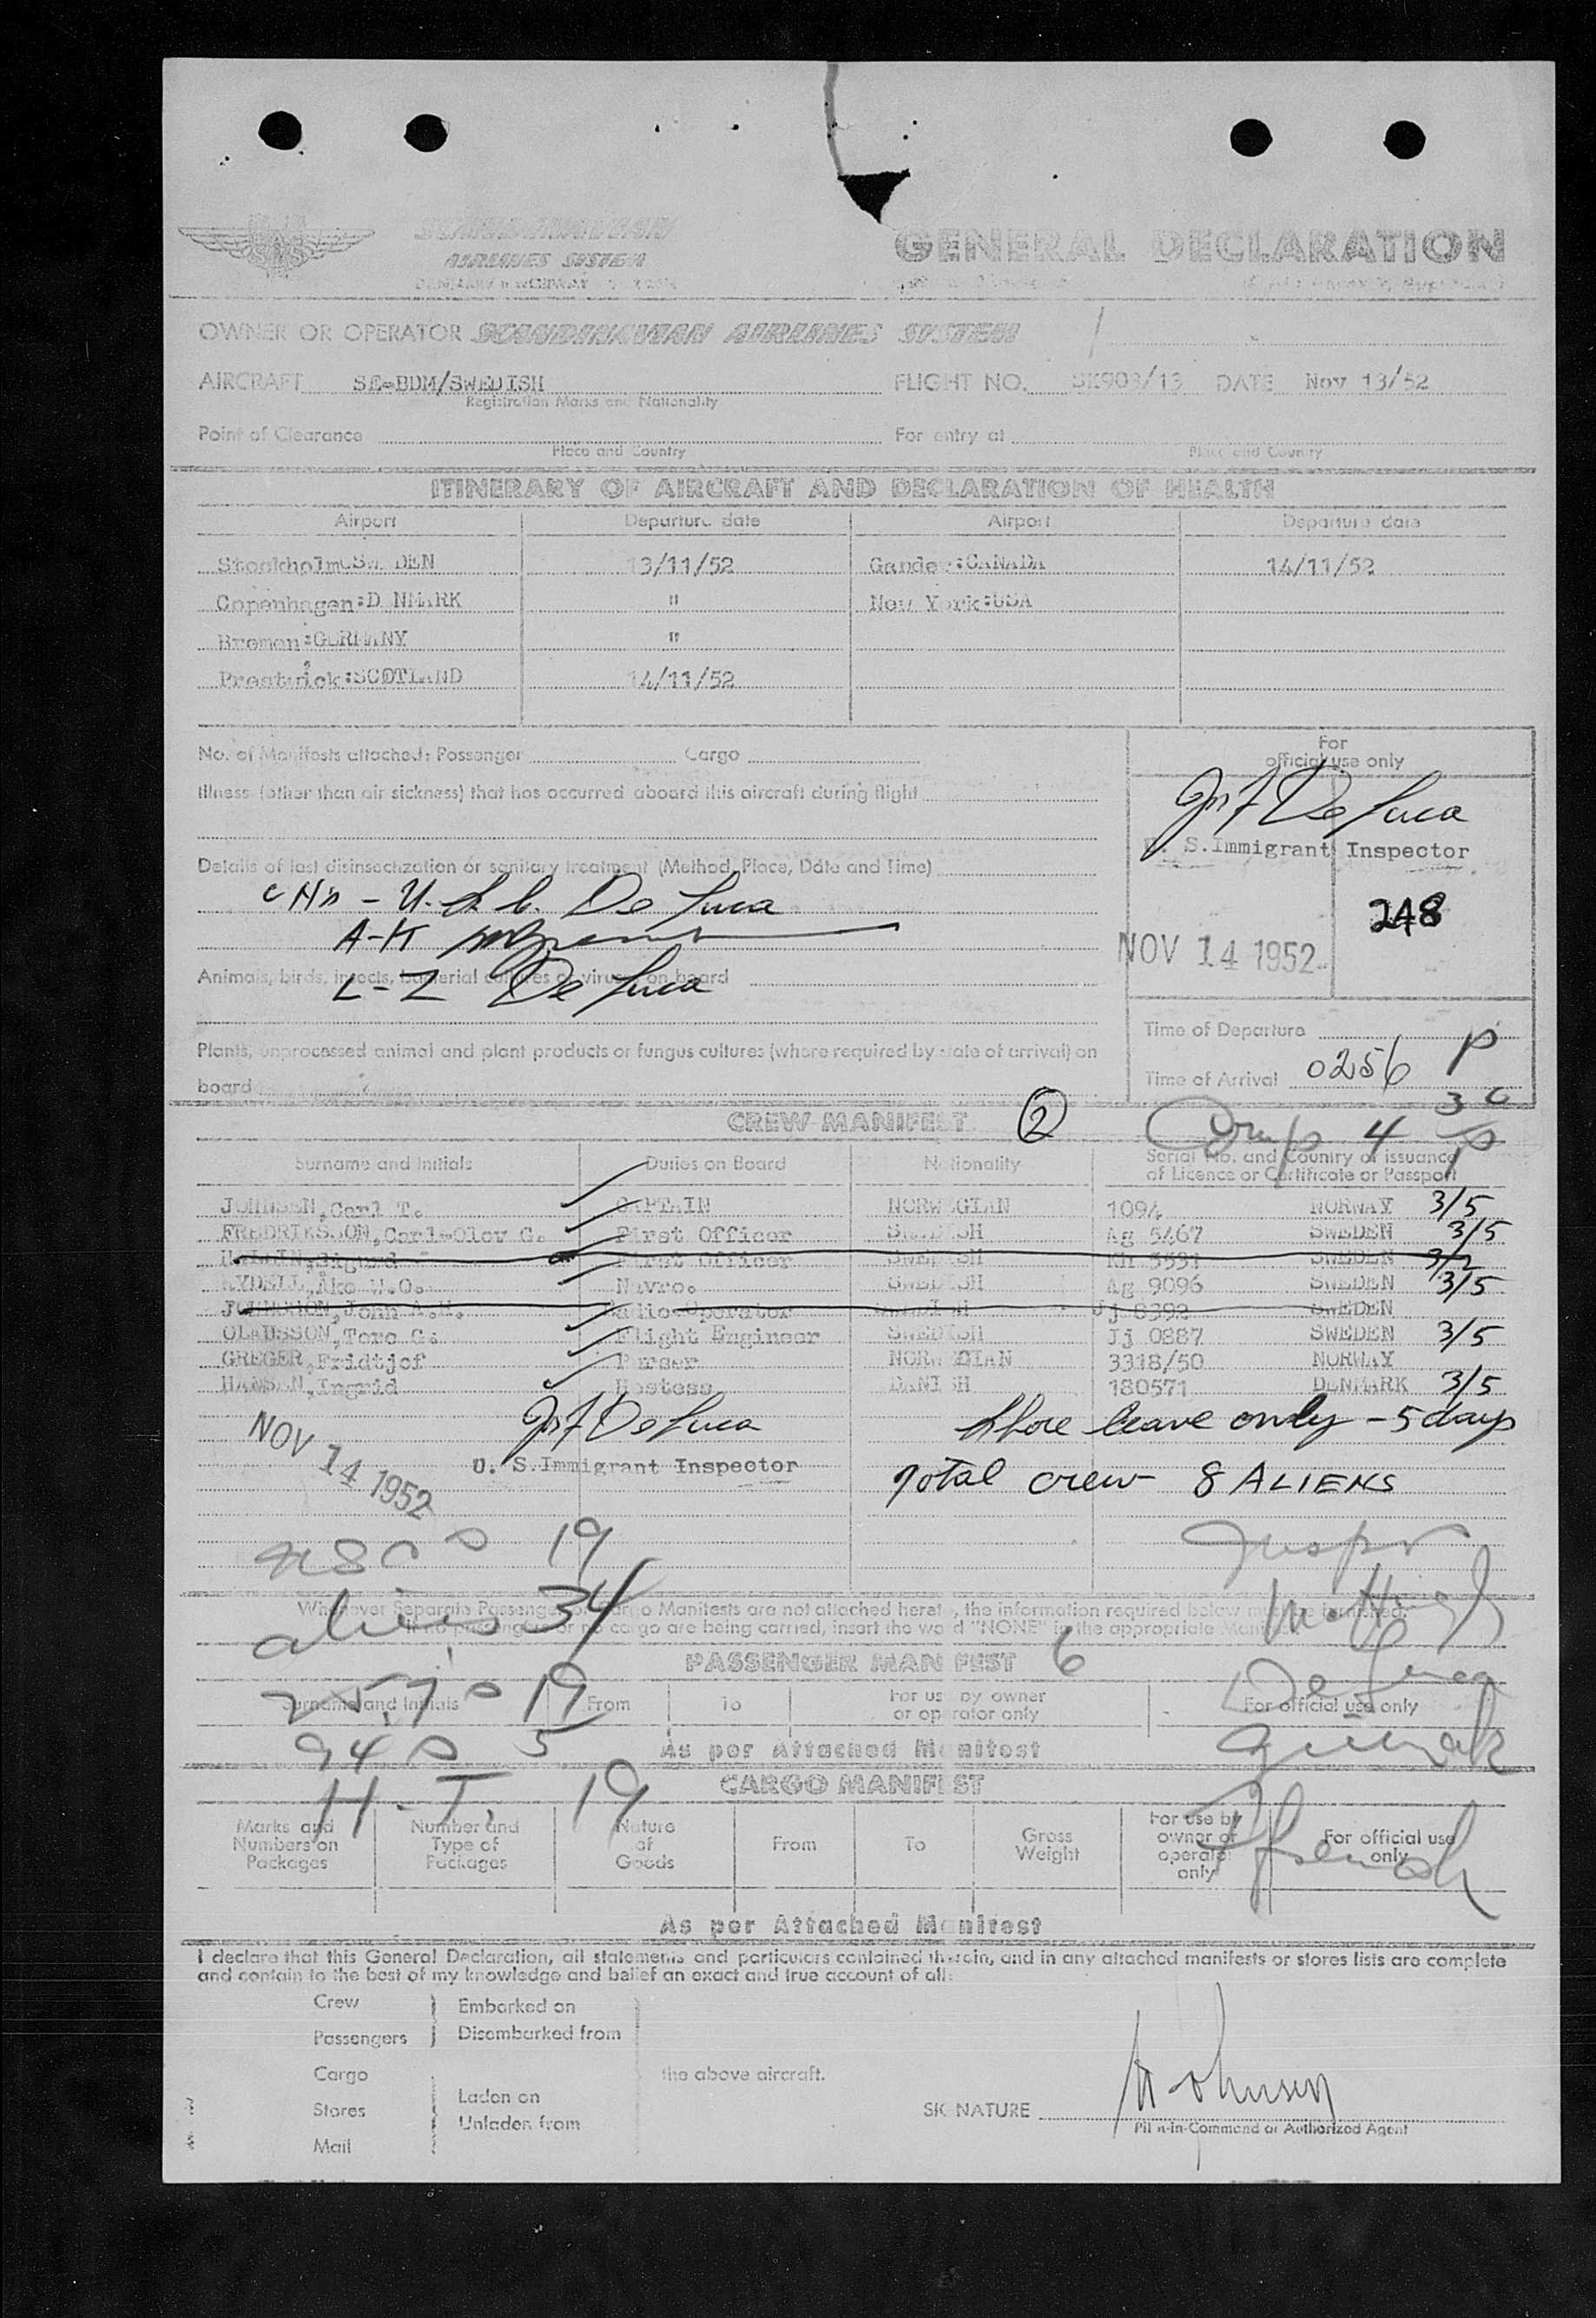 SCANDINAVIAN
AIRLINES SYSTEM
GENERAL DECLARATION
OWNER OR OPERATOR SCANDINAVIAN AIRLINES SYSTEM
AIRCRAFT SE-BDM/SWEDISH FLIGHT NO. SK903/13 DATE Nov 13/52
Registration Marks and Nationality
Point of Clearance For entry at
Place and Country Place and Country
ITINERARY OF AIRCRAFT AND DECLARATION OF HEALTH
Airport Departure date Airport Departure date
Stockholm:SWEDEN 13/11/52 Gander:CANADA 14/11/52
Copenhagen:DENMARK " New York:USA
Bremen:GERMANY "
Prestwick:SCOTLAND 14/11/52
No. of Manifests attached: Passenger Cargo
For
official use only
Illness (other than air sickness) that has occurred aboard this aircraft during flight
De Luca
U. S. Immigrant Inspector
Details of last disinsectization or sanitary treatment (Method, Place, Date and Time)
De Luca
248
A-K
NOV 14 1952
Animals, birds, insects, bacterial cultures or viruses on board
L-Z De Luca
Time of Departure P
Plants, unprocessed animal and plant products or fungus cultures (where required by state of arrival) on
board
Time of Arrival 0256
CREW MANIFEST 2
Comp 4
Surname and Initials Duties on Board Nationality Serial No. and Country of issuance
of Licence or Certificate or Passport
JOHNSEN,Carl T. CAPTAIN NORWEGIAN 1094 NORWAY 3/5
FREDRIKSSON,Carl-Olov G. First Officer SWEDISH Ag 5467 SWEDEN 3/5
Sigurd First Officer SWEDISH SWEDEN 3/2
RYDELL,Åke W.O. Navro. SWEDISH Ag 9096 SWEDEN 3/5
John Radio Operator SWEDISH Jj 0392 SWEDEN
OLAUSSON,Tore G. Flight Engineer SWEDISH Jj 0887 SWEDEN 3/5
GREGER,Fridtjof Purser NORWEGIAN 3318/50 NORWAY
HANSEN,Ingrid Hostess DANISH 180571 DENMARK 3/5
De Luca Shore leave only - 5 days
NOV 14 1952
U. S. Immigrant Inspector
Total crew 8 ALIENS
19
Whenever Separate Passenger or Cargo Manifests are not attached hereto, the information required below must be furnished.
If no passengers or no cargo are being carried, insert the word "NONE" in the appropriate Manifest
aliens 34
PASSENGER MANIFEST 6
19
De Luca
Surname and Initials From To For use by owner
or operator only For official use only
5
As per Attached Manifest
CARGO MANIFEST
H.T. 19
Marks and
Numbers on
Packages Number and
Type of
Packages Nature
of
Goods From To Gross
Weight For use by
owner or
operator
only For official use
only
As per Attached Manifest
I declare that this General Declaration, all statements and particulars contained therein, and in any attached manifests or stores lists are complete
and contain to the best of my knowledge and belief an exact and true account of all:
Crew Embarked on
Passengers Disembarked from
Cargo the above aircraft.
Laden on
Stores
Unladen from
SIGNATURE Johnsen
Pilot-in-Command or Authorized Agent
Mail